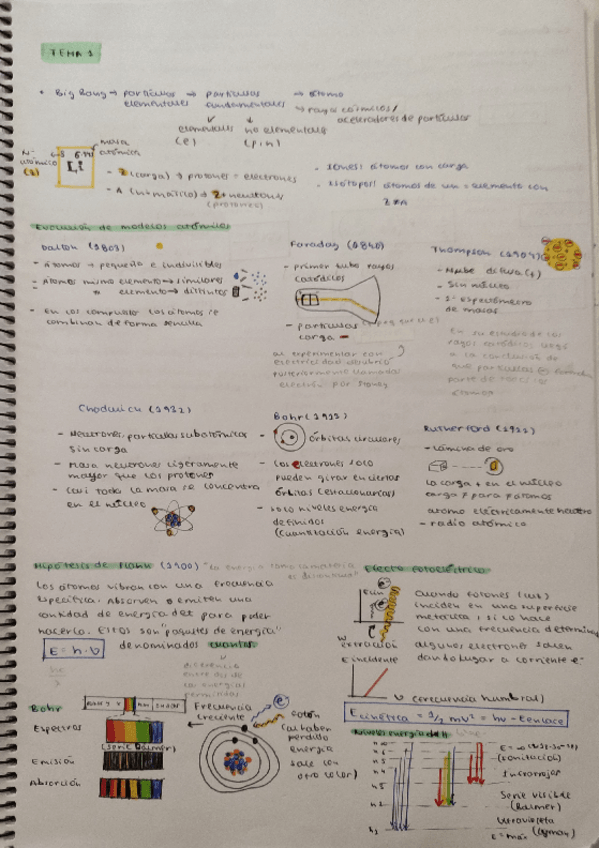 TEMA 1
• Big Bang → partículas → partículas → átomo
elementales fundamentales → rayos cósmicos/
aceleradores de partículas
elementales no elementales
(e) (p,n)
Nº atómico (Z)
masa atómica
Li
- Z (carga) → protones = electrones
- A (nº másico) → Z + neutrones
(protones)
- Iones: átomos con carga
- Isótopos: átomos de un = elemento con
Z ≠ A
Evolución de modelos atómicos
Dalton (1803)
- átomos → pequeña e indivisibles
- átomos mismo elemento → similares
≠ elemento → distintos
- en los compuestos los átomos se
combinan de forma sencilla
Faraday (1840)
- primer tubo rayos
catódicos
- partículas
carga -
al experimentar con
electricidad descubrió
posteriormente llamadas
electrón por Stoney
Thompson (1904)
- Nube difusa (+)
- Sin núcleo
- 1º espectómetro
de masas
En su estudio de los
rayos catódicos llegó
a la conclusión de
que partículas es
parte de todos los
átomos
Chadwick (1932)
- Neutrones, partículas subatómicas
sin carga
- Masa neutrones ligeramente
mayor que los protones
- Casi toda la masa se concentra
en el núcleo
Bohr (1913)
- Órbitas circulares
- Los electrones solo
pueden girar en ciertas
órbitas (estacionarias)
- Solo niveles energía
definidos
(cuantización energía)
Rutherford (1911)
- Lámina de oro
La carga + en el núcleo
carga ≠ para ≠ átomos
átomo eléctricamente neutro
- radio atómico
Hipótesis de Plank (1900) "La energía como la materia
es discontinua"
Los átomos vibran con una frecuencia
específica. Absorven o emiten una
cantidad de energía det para poder
hacerlo. Estos son "paquetes de energía"
denominados cuantos.
E = h·ν
diferencia
entre dos de
las energías
permitidas
Efecto fotoeléctrico
Ecin
W extracción
Cuando fotones (luz)
inciden en una superficie
metálica, si lo hace
con una frecuencia determina
algunos electrones salen
dando lugar a corriente e-
E incidente
ν (frecuencia humbral)
E cinética = 1/2 mv² = hν - Eenlace
Bohr
Espectros
(serie Balmer)
Emisión
Absorción
Frecuencia
creciente
fotón
(al haber
perdido
energía
sale con
otro color)
Niveles energía del H
n=∞
n=6
n=5
n=4
n=3
n=2
n=1
(ionización)
Infrarrojos
Serie visible
(Balmer)
Ultravioleta
(Lyman)